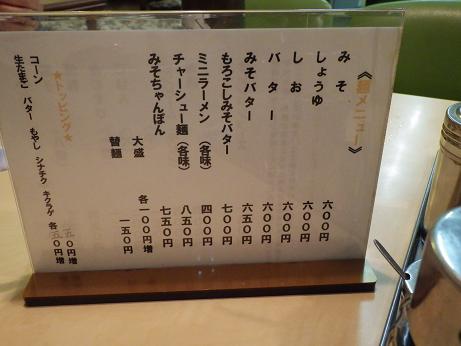 《麺メニュー》
みそ 六〇〇円
しょうゆ 六〇〇円
しお 六〇〇円
バター 六〇〇円
みそバター 六五〇円
もろこしみそバター 七〇〇円
ミニラーメン(各味) 四〇〇円
チャーシュー麺(各味) 八五〇円
みそちゃんぽん 七五〇円
大盛 各一〇〇円増
替麺 一五〇円
★トッピング★
コーン 一五〇円増
生たまご バター もやし シナチク キクラゲ 各五〇円増